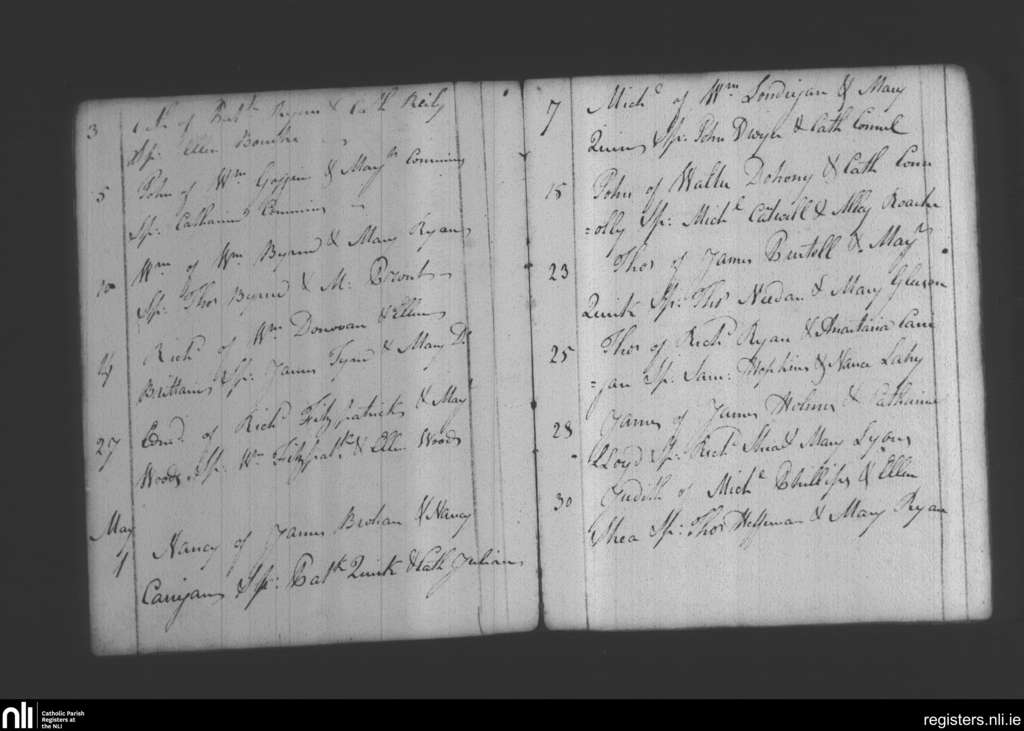 3 of Pat^k Byrne & Cath Reily
Sp: Ellen Bourke
5 John of W^m & Mary Commins
Sp: Catharine Commins
10 W^m of W^m Byrne & Mary Ryan
Sp: Tho^s Byrne & M:
24 Rich^d of W^m Donovan & Ellen
Brittain Sp: James & Mary D^o
27 Edm^d of Rich^d Fitzpatrick & Mary
Woods Sp: W^m Fitzpat^k & Ellen Woods
May
1 Nancy of James Brohan & Nancy
Carrigan Sp: Pat^k Quirk & Cath Julian
7 Mich^l of W^m Londrigan & Mary
Quinn Sp: John Dwyer & Cath Connel
15 John of Walter Dohony & Cath Conn
=olly Sp: Mich^l & Roache
23 Tho^s of James & Mary
Quirk Sp: Tho^s Needan & Mary Gleeson
25 Tho^s of Rich^d Ryan & Anastasia Carri
=gan Sp: Sam: Hopkins & Nance Lahy
28 James of James Holmes & Catharine
Lloyd Sp: Rich^d Shea & Mary Lyons
30 Judith of Mich^l Phillips & Ellen
Shea Sp: Tho^s Heffernan & Mary Ryan
nli
Catholic Parish
Registers at
the NLI
registers.nli.ie